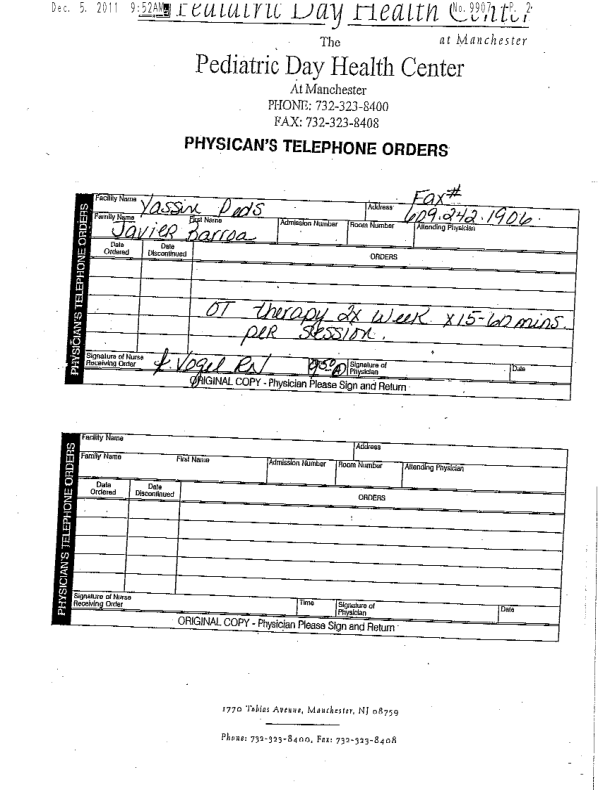 Dec. 5. 2011 9:52AM Pediatric Day Health Center No. 9907 P. 2
at Manchester
The
Pediatric Day Health Center
At Manchester
PHONE: 732-323-8400
FAX: 732-323-8408
PHYSICAN'S TELEPHONE ORDERS
PHYSICIAN'S TELEPHONE ORDERS
Facility Name Yassin Peds Address Fax#
609.242.1906.
Family Name First Name Admission Number Room Number Attending Physician
Javier Barroa
Date Ordered Date Discontinued ORDERS
OT therapy 2x week x15-60 mins.
per session.
Signature of Nurse Receiving Order Vogel RN Signature of Physician Date
ORIGINAL COPY - Physician Please Sign and Return
PHYSICIAN'S TELEPHONE ORDERS
Facility Name Address
Family Name First Name Admission Number Room Number Attending Physician
Date Ordered Date Discontinued ORDERS
Signature of Nurse Receiving Order Time Signature of Physician Date
ORIGINAL COPY - Physician Please Sign and Return
1770 Tobias Avenue, Manchester, NJ 08759
Phone: 732-323-8400, Fax: 732-323-8408